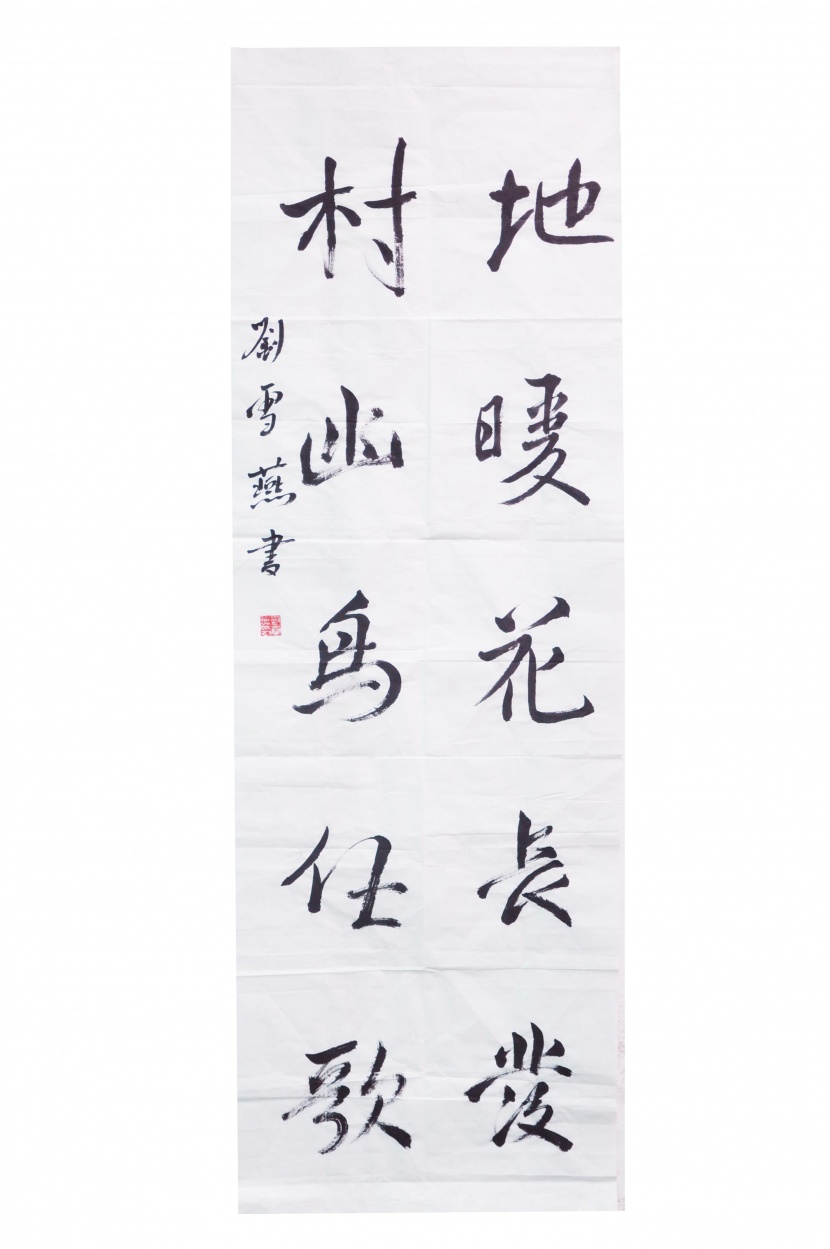 地暖花長發
村幽鳥任歌
劉雪燕書